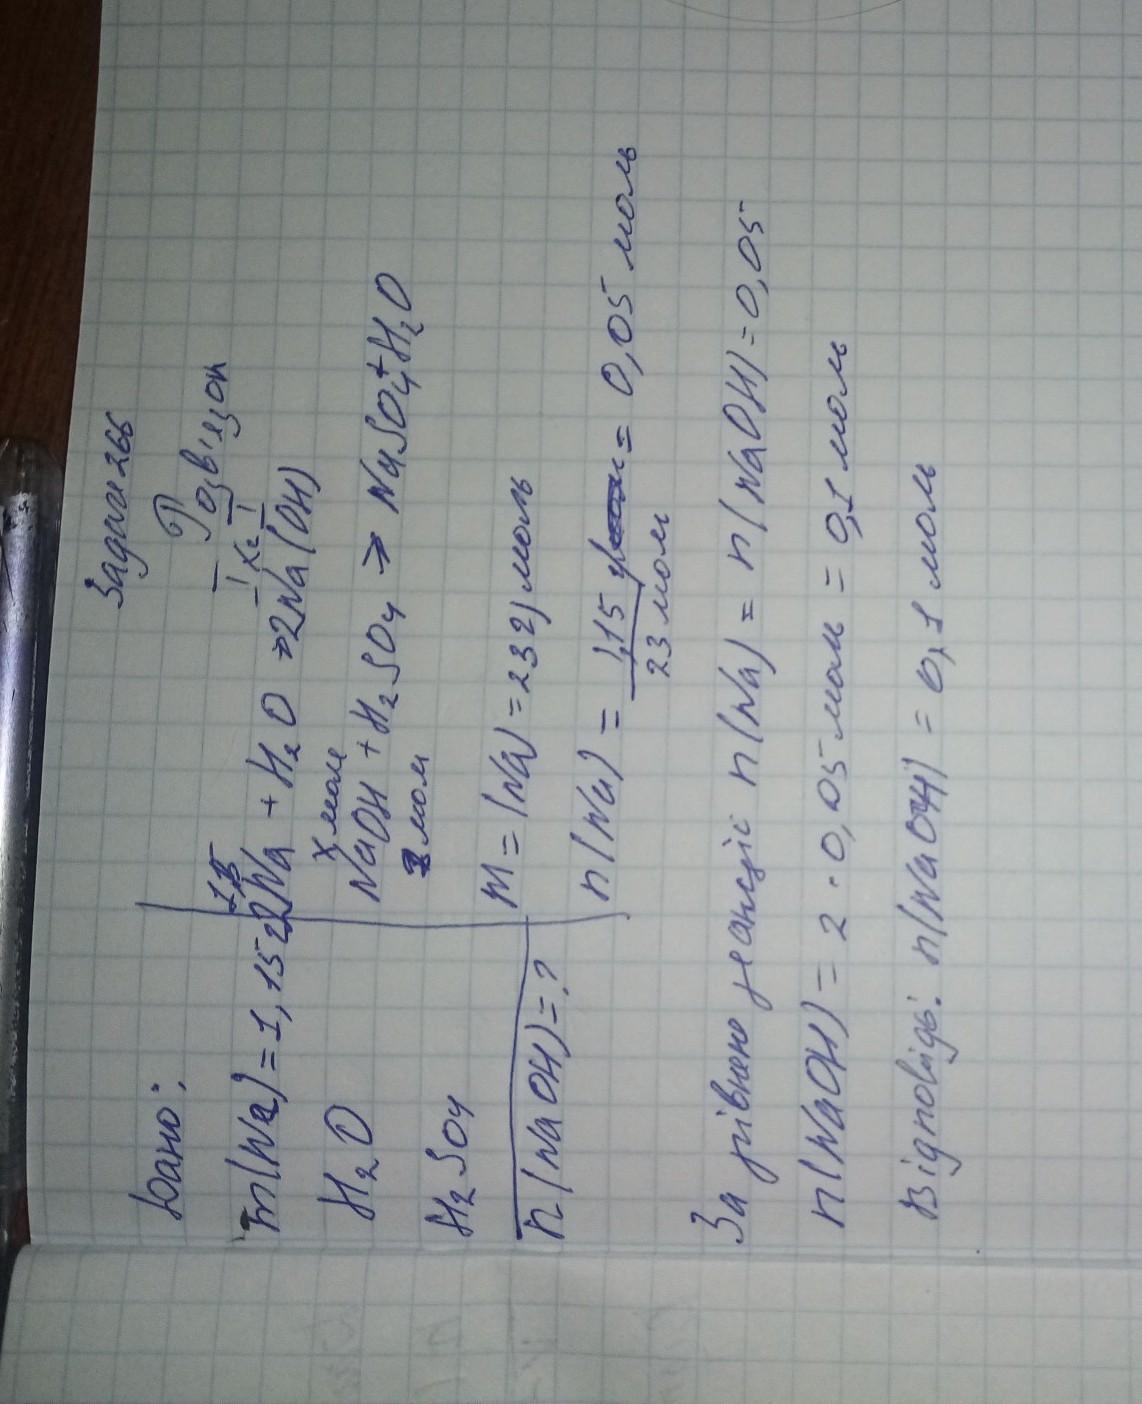 Задача 266
Дано:
Розв'язок
m(Na) = 1,15г
2Na + H₂O → 2Na(OH)
H₂O
x моль
NaOH + H₂SO₄ → NaSO₄ + H₂O
H₂SO₄
моль
M = (Na) = 23 г/моль
n(NaOH) = ?
n(Na) = 1,15 г / 23 моль = 0,05 моль
За рівнено реакціє n(Na) = n(NaOH) = 0,05
n(NaOH) = 2 · 0,05 моль = 0,1 моль
Відповідь: n(NaOH) = 0,1 моль